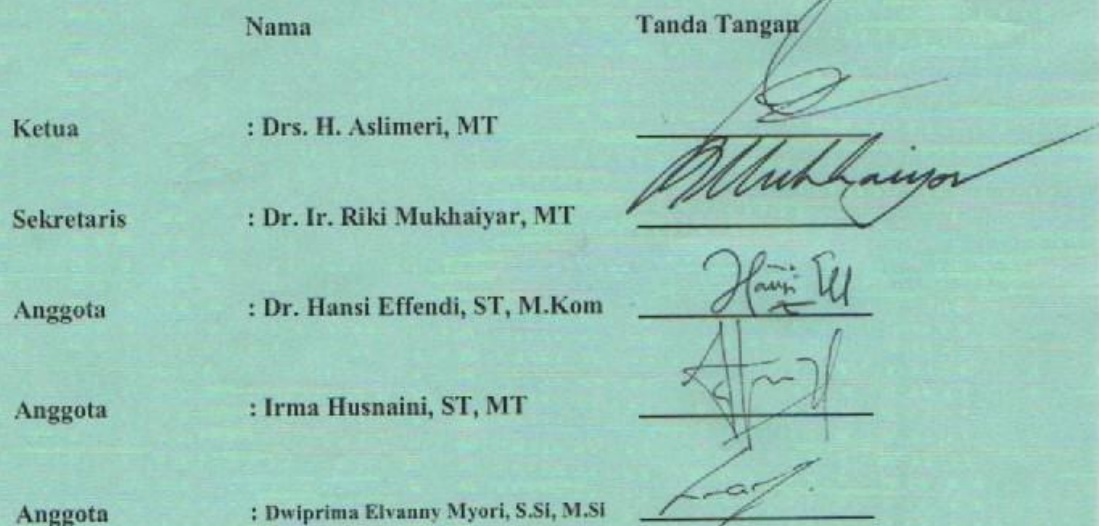 Nama Tanda Tangan
Ketua : Drs. H. Aslimeri, MT
Sekretaris : Dr. Ir. Riki Mukhaiyar, MT
Anggota : Dr. Hansi Effendi, ST, M.Kom
Anggota : Irma Husnaini, ST, MT
Anggota : Dwiprima Elvanny Myori, S.Si, M.Si